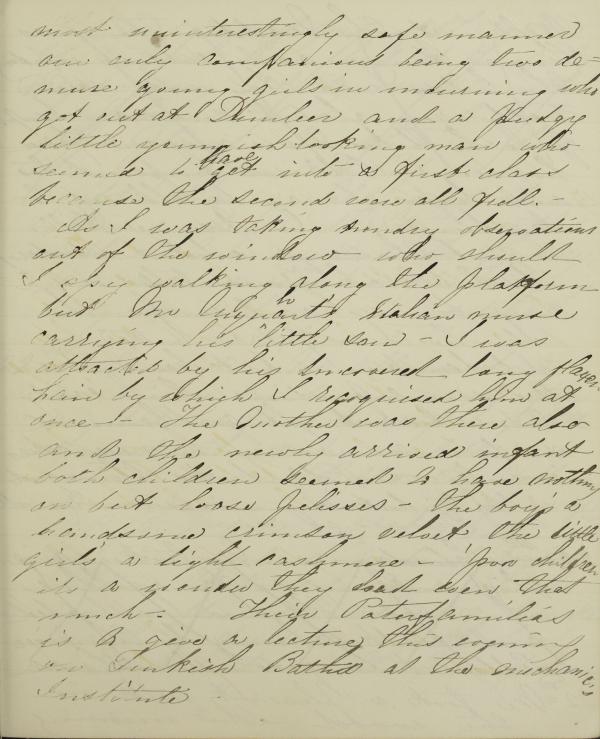 most uninterestingly safe manner
our only companions being two de=
mure young girls in mourning who
got out at Dunkeer and a pudgy
little youngish looking man who
seemed to have get into a first class
because the second were all full. -
As I was taking sundry observations
out of the window who should
I spy walking along the platform
but Mr Urquhart's Italian nurse
carrying his little son - I was
attracted by his uncovered long flaxen
hair by which I recognised him at
once - The Mother was there also
and the newly arrived infant
both children seemed to have nothing
on but loose pelisses - the boy's a
handsome crimson velvet the little
girl's a light cashmere - poor children
its a wonder they had even that
much - Their Paterfamilias
is to give a lecture this evening
on Turkish Baths at the mechanic's
Institute